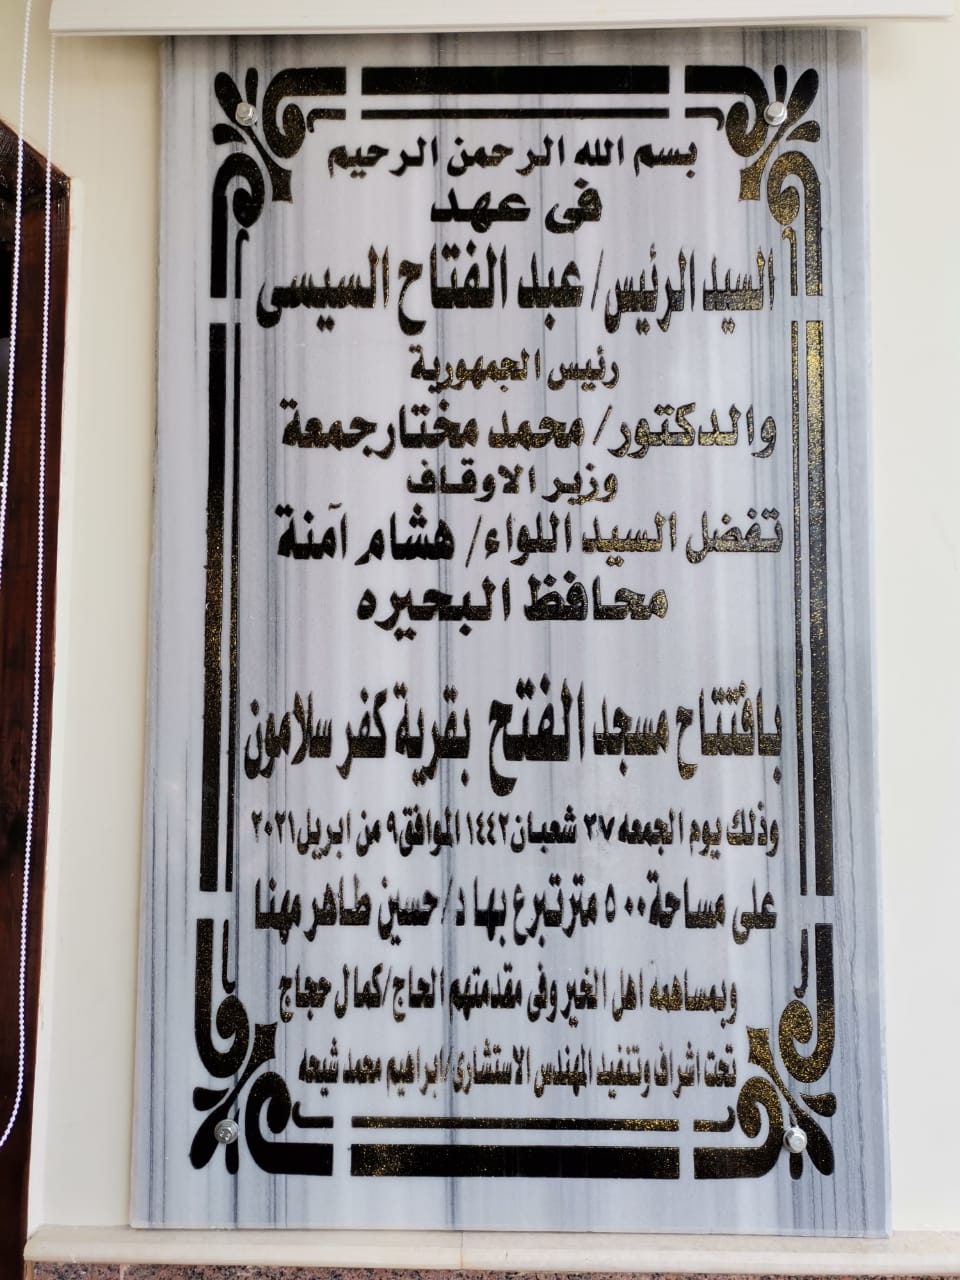 بسم الله الرحمن الرحيم
فى عهد
السيد الرئيس/ عبد الفتاح السيسى
رئيس الجمهورية
والدكتور/ محمد مختار جمعة
وزير الاوقاف
تفضل السيد اللواء/ هشام آمنة
محافظ البحيره
بافتتاح مسجد الفتح بقرية كفر سلامون
وذلك يوم الجمعه ٢٧ شعبان ١٤٤٢ الموافق ٩ من ابريل ٢٠٢١
على مساحة ٥٠٠ متر تبرع بها د/ حسين طاهر مهنا
وبمساهمه اهل الخير وفى مقدمتهم الحاج/ كمال حجاج
تحت اشراف وتنفيد المهندس الاستشارى/ ابراهيم محمد شيحه